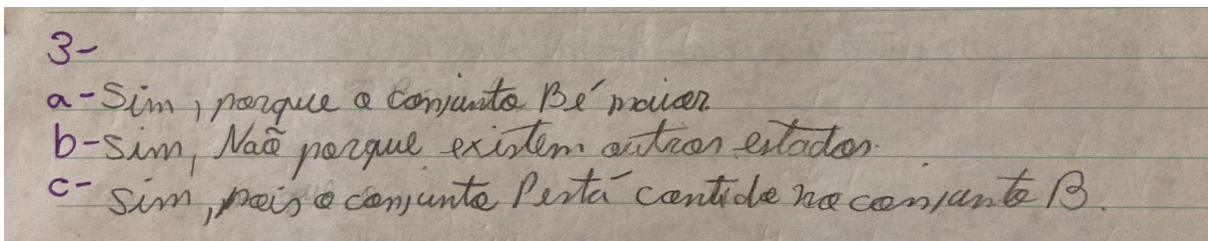 3-
a- Sim, porque o conjunto B é maior
b- Sim, Não porque existem outros estados.
c- Sim, pois o conjunto P está contido no conjunto B.